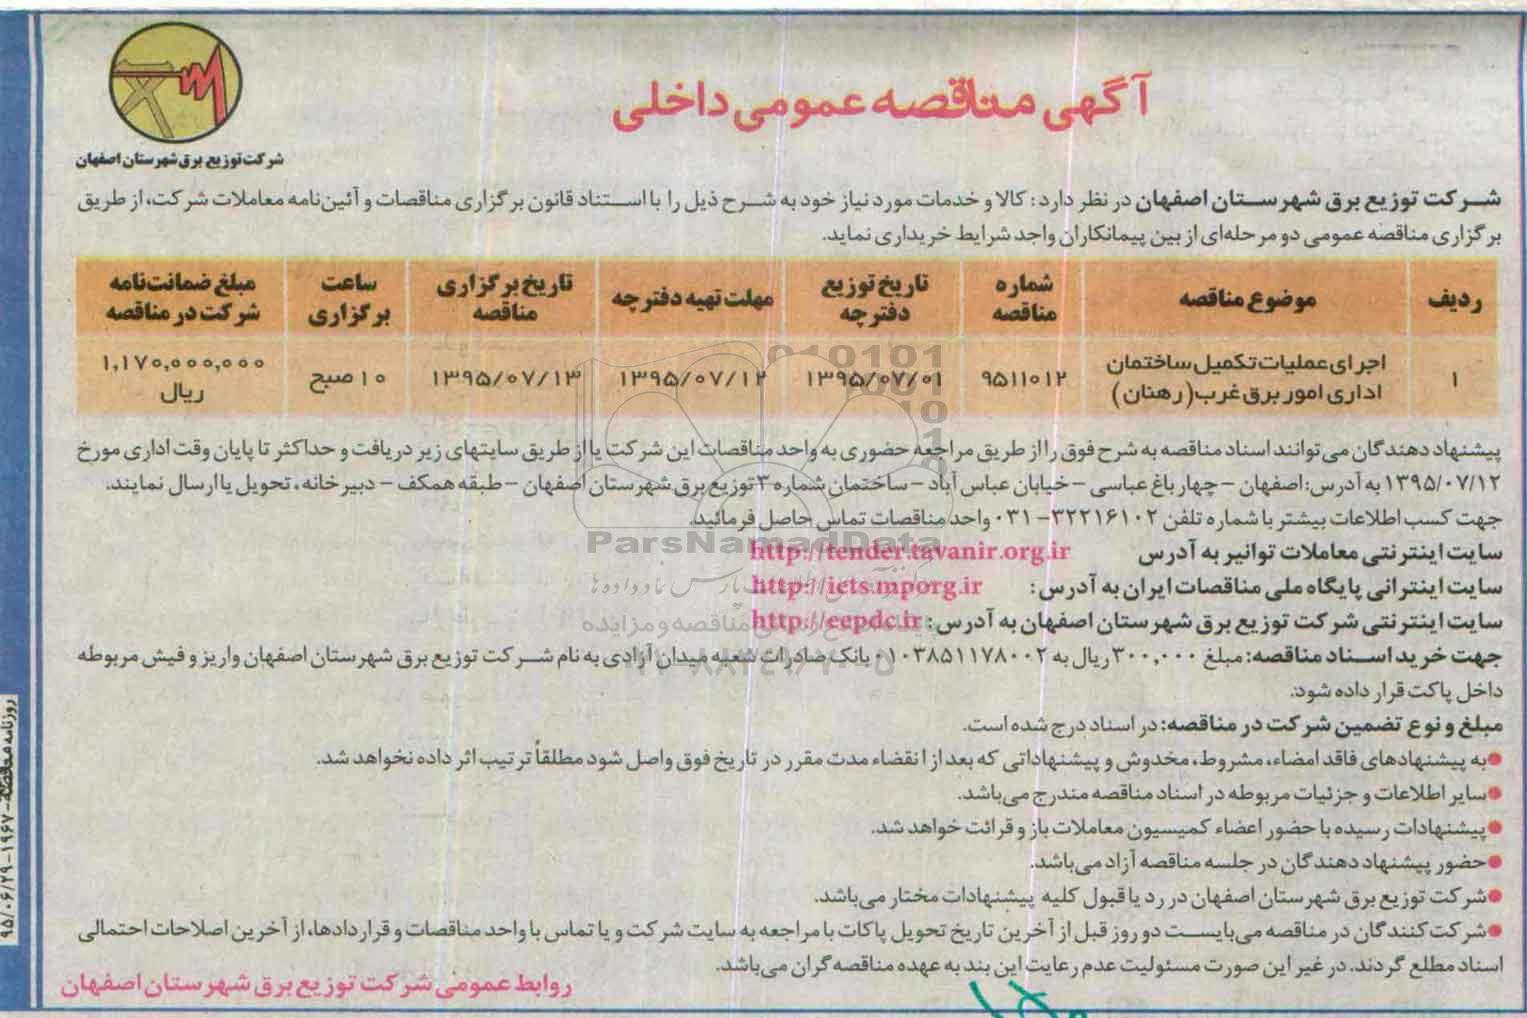 آگهی مناقصه عمومی داخلی
شرکت توزیع برق شهرستان اصفهان
شرکت توزیع برق شهرستان اصفهان در نظر دارد: کالا و خدمات مورد نیاز خود به شرح ذیل را با استناد قانون برگزاری مناقصات و آئین‌نامه معاملات شرکت، از طریق
برگزاری مناقصه عمومی دو مرحله‌ای از بین پیمانکاران واجد شرایط خریداری نماید.
ردیف موضوع مناقصه شماره مناقصه تاریخ توزیع دفترچه مهلت تهیه دفترچه تاریخ برگزاری مناقصه ساعت برگزاری مبلغ ضمانت‌نامه شرکت در مناقصه
۱ اجرای عملیات تکمیل ساختمان اداری امور برق غرب (رهنان) ۹۵۱۱۰۱۲ ۱۳۹۵/۰۷/۰۱ ۱۳۹۵/۰۷/۱۲ ۱۳۹۵/۰۷/۱۳ ۱۰ صبح ۱,۱۷۰,۰۰۰,۰۰۰ ریال
پیشنهاد دهندگان می‌توانند اسناد مناقصه به شرح فوق را از طریق مراجعه حضوری به واحد مناقصات این شرکت یا از طریق سایتهای زیر دریافت و حداکثر تا پایان وقت اداری مورخ
۱۳۹۵/۰۷/۱۲ به آدرس: اصفهان – چهارباغ عباسی – خیابان عباس آباد – ساختمان شماره ۳ توزیع برق شهرستان اصفهان – طبقه همکف – دبیرخانه، تحویل یا ارسال نمایند.
جهت کسب اطلاعات بیشتر با شماره تلفن ۳۲۲۱۶۱۰۲–۰۳۱ واحد مناقصات تماس حاصل فرمائید.
سایت اینترنتی معاملات توانیر به آدرس http://tender.tavanir.org.ir
سایت اینترانی پایگاه ملی مناقصات ایران به آدرس: http://iets.mporg.ir
سایت اینترنتی شرکت توزیع برق شهرستان اصفهان به آدرس: http://eepdc.ir
جهت خرید اسناد مناقصه: مبلغ ۳۰۰,۰۰۰ ریال به ۰۱۰۳۸۵۱۱۷۸۰۰۲ بانک صادرات شعبه میدان آزادی به نام شرکت توزیع برق شهرستان اصفهان واریز و فیش مربوطه
داخل پاکت قرار داده شود.
مبلغ و نوع تضمین شرکت در مناقصه: در اسناد درج شده است.
●به پیشنهادهای فاقد امضاء، مشروط، مخدوش و پیشنهاداتی که بعد از انقضاء مدت مقرر در تاریخ فوق واصل شود مطلقاً ترتیب اثر داده نخواهد شد.
●سایر اطلاعات و جزئیات مربوطه در اسناد مناقصه مندرج می‌باشد.
●پیشنهادات رسیده با حضور اعضاء کمیسیون معاملات باز و قرائت خواهد شد.
●حضور پیشنهاد دهندگان در جلسه مناقصه آزاد می‌باشد.
●شرکت توزیع برق شهرستان اصفهان در رد یا قبول کلیه پیشنهادات مختار می‌باشد.
●شرکت‌کنندگان در مناقصه می‌بایست دو روز قبل از آخرین تاریخ تحویل پاکات با مراجعه به سایت شرکت و یا تماس با واحد مناقصات و قراردادها، از آخرین اصلاحات احتمالی
اسناد مطلع گردند. در غیر این صورت مسئولیت عدم رعایت این بند به عهده مناقصه‌گران می‌باشد.
روابط عمومی شرکت توزیع برق شهرستان اصفهان
روزنامه مناقصه–۱۹۶۷–۹۵/۰۶/۲۹
ParsNamadData